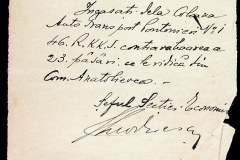 Încasati dela Coloana
Auto Transport Pontonieri No 1
46. R.KK.S. contravaloarea a
23. păsări ce le ridică din
Com. Anatolievca.
Șeful Secției Economice